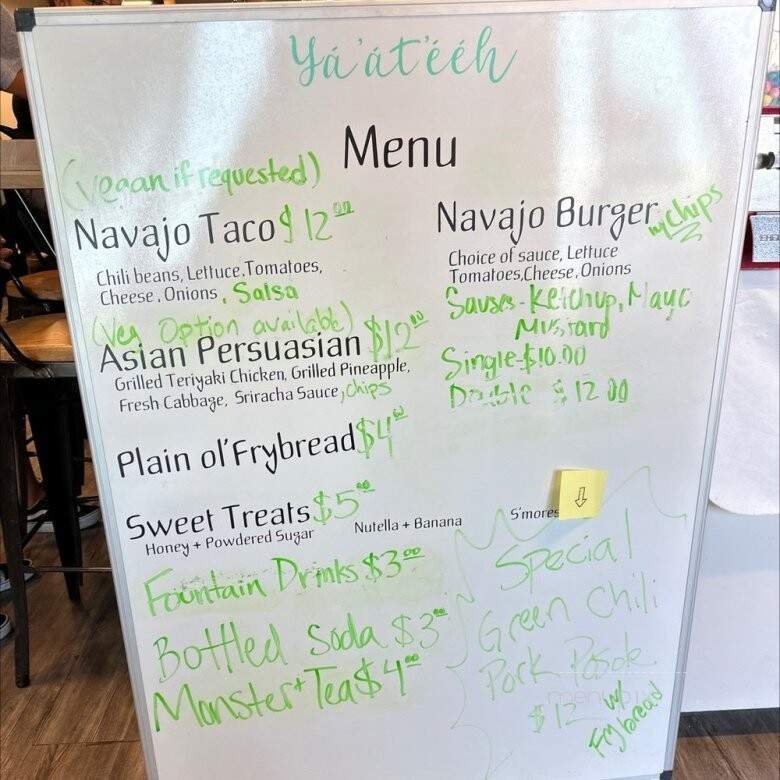 Yá'át'ééh
Menu
(vegan if requested)
Navajo Taco $12.00
Chili beans, Lettuce, Tomatoes,
Cheese, Onions, Salsa
(Veg Option available)
Asian Persuasian $12.00
Grilled Teriyaki Chicken, Grilled Pineapple,
Fresh Cabbage, Sriracha Sauce, chips
Plain ol' Frybread $4.00
Sweet Treats $5.00
Honey + Powdered Sugar
Nutella + Banana
S'mores
Fountain Drinks $3.00
Bottled Soda $3.00
Monster + Tea $4.00
Navajo Burger w/ chips
Choice of sauce, Lettuce
Tomatoes, Cheese, Onions
Sauses - Ketchup, Mayo
Mustard
Single - $10.00
Double $12.00
Special
Green Chili
Pork Posole
$12 w/
Frybread